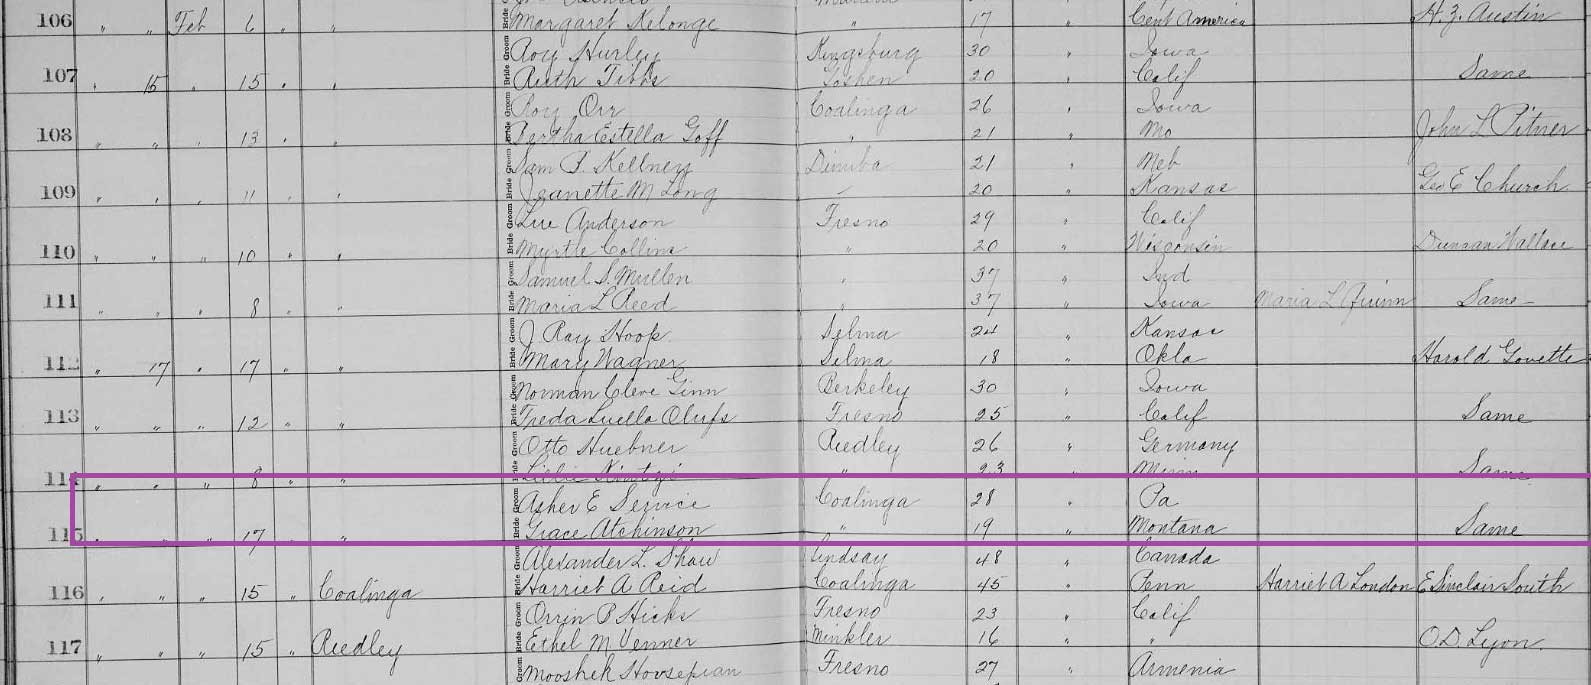 106 " " Feb 6 " " Bride Margaret Kelonge " 17 " Cent America H. Z. Austin
Groom Roy Hurley Kingsburg 30 " Iowa
107 " 15 " 15 " " Bride Ruth Tibbs Goshen 20 " Calif Same
Groom Roy Orr Coalinga 26 " Iowa
108 " " " 13 " " Bride Bertha Estella Goff " 21 " Mo John L Pitner
Groom Sam P. Kellney Dinuba 21 " Neb
109 " " " 11 " " Bride Jeanette M Long " 20 " Kansas Geo E Church
Groom Anderson Fresno 29 " Calif
110 " " " 10 " " Bride Myrtle Collins " 20 " Wisconsin Duncan Wallace
Groom Samuel S. Mullen " 37 " Ind
111 " " " 8 " " Bride Maria L Reed " 37 " Iowa Maria L Quinn Same
Groom J Ray Hoop Selma 24 " Kansas
112 " 17 " 17 " " Bride Mary Wagner Selma 18 " Okla Harold Govette
Groom Norman Cleve Ginn Berkeley 30 " Iowa
113 " " " 12 " " Bride Freda Luella Olufs Fresno 25 " Calif Same
Groom Otto Huebner Reedley 26 " Germany
114 " " " 8 " " Bride " 23 " Minn Same
Groom Asher E Service Coalinga 28 " Pa
115 " " " 17 " " Bride Grace Atchinson " 19 " Montana Same
Groom Alexander L. Shaw Lindsay 48 " Canada
116 " " " 15 " Coalinga Bride Harriet A Reid Coalinga 45 " Penn Harriet A London E Sinclair South
Groom Orrin P Hicks Fresno 23 " Calif
117 " " " 15 " Reedley Bride Ethel M Venner Minkler 16 " " O.D. Lyon
Groom Mooshek Hovsepian Fresno 27 " Armenia